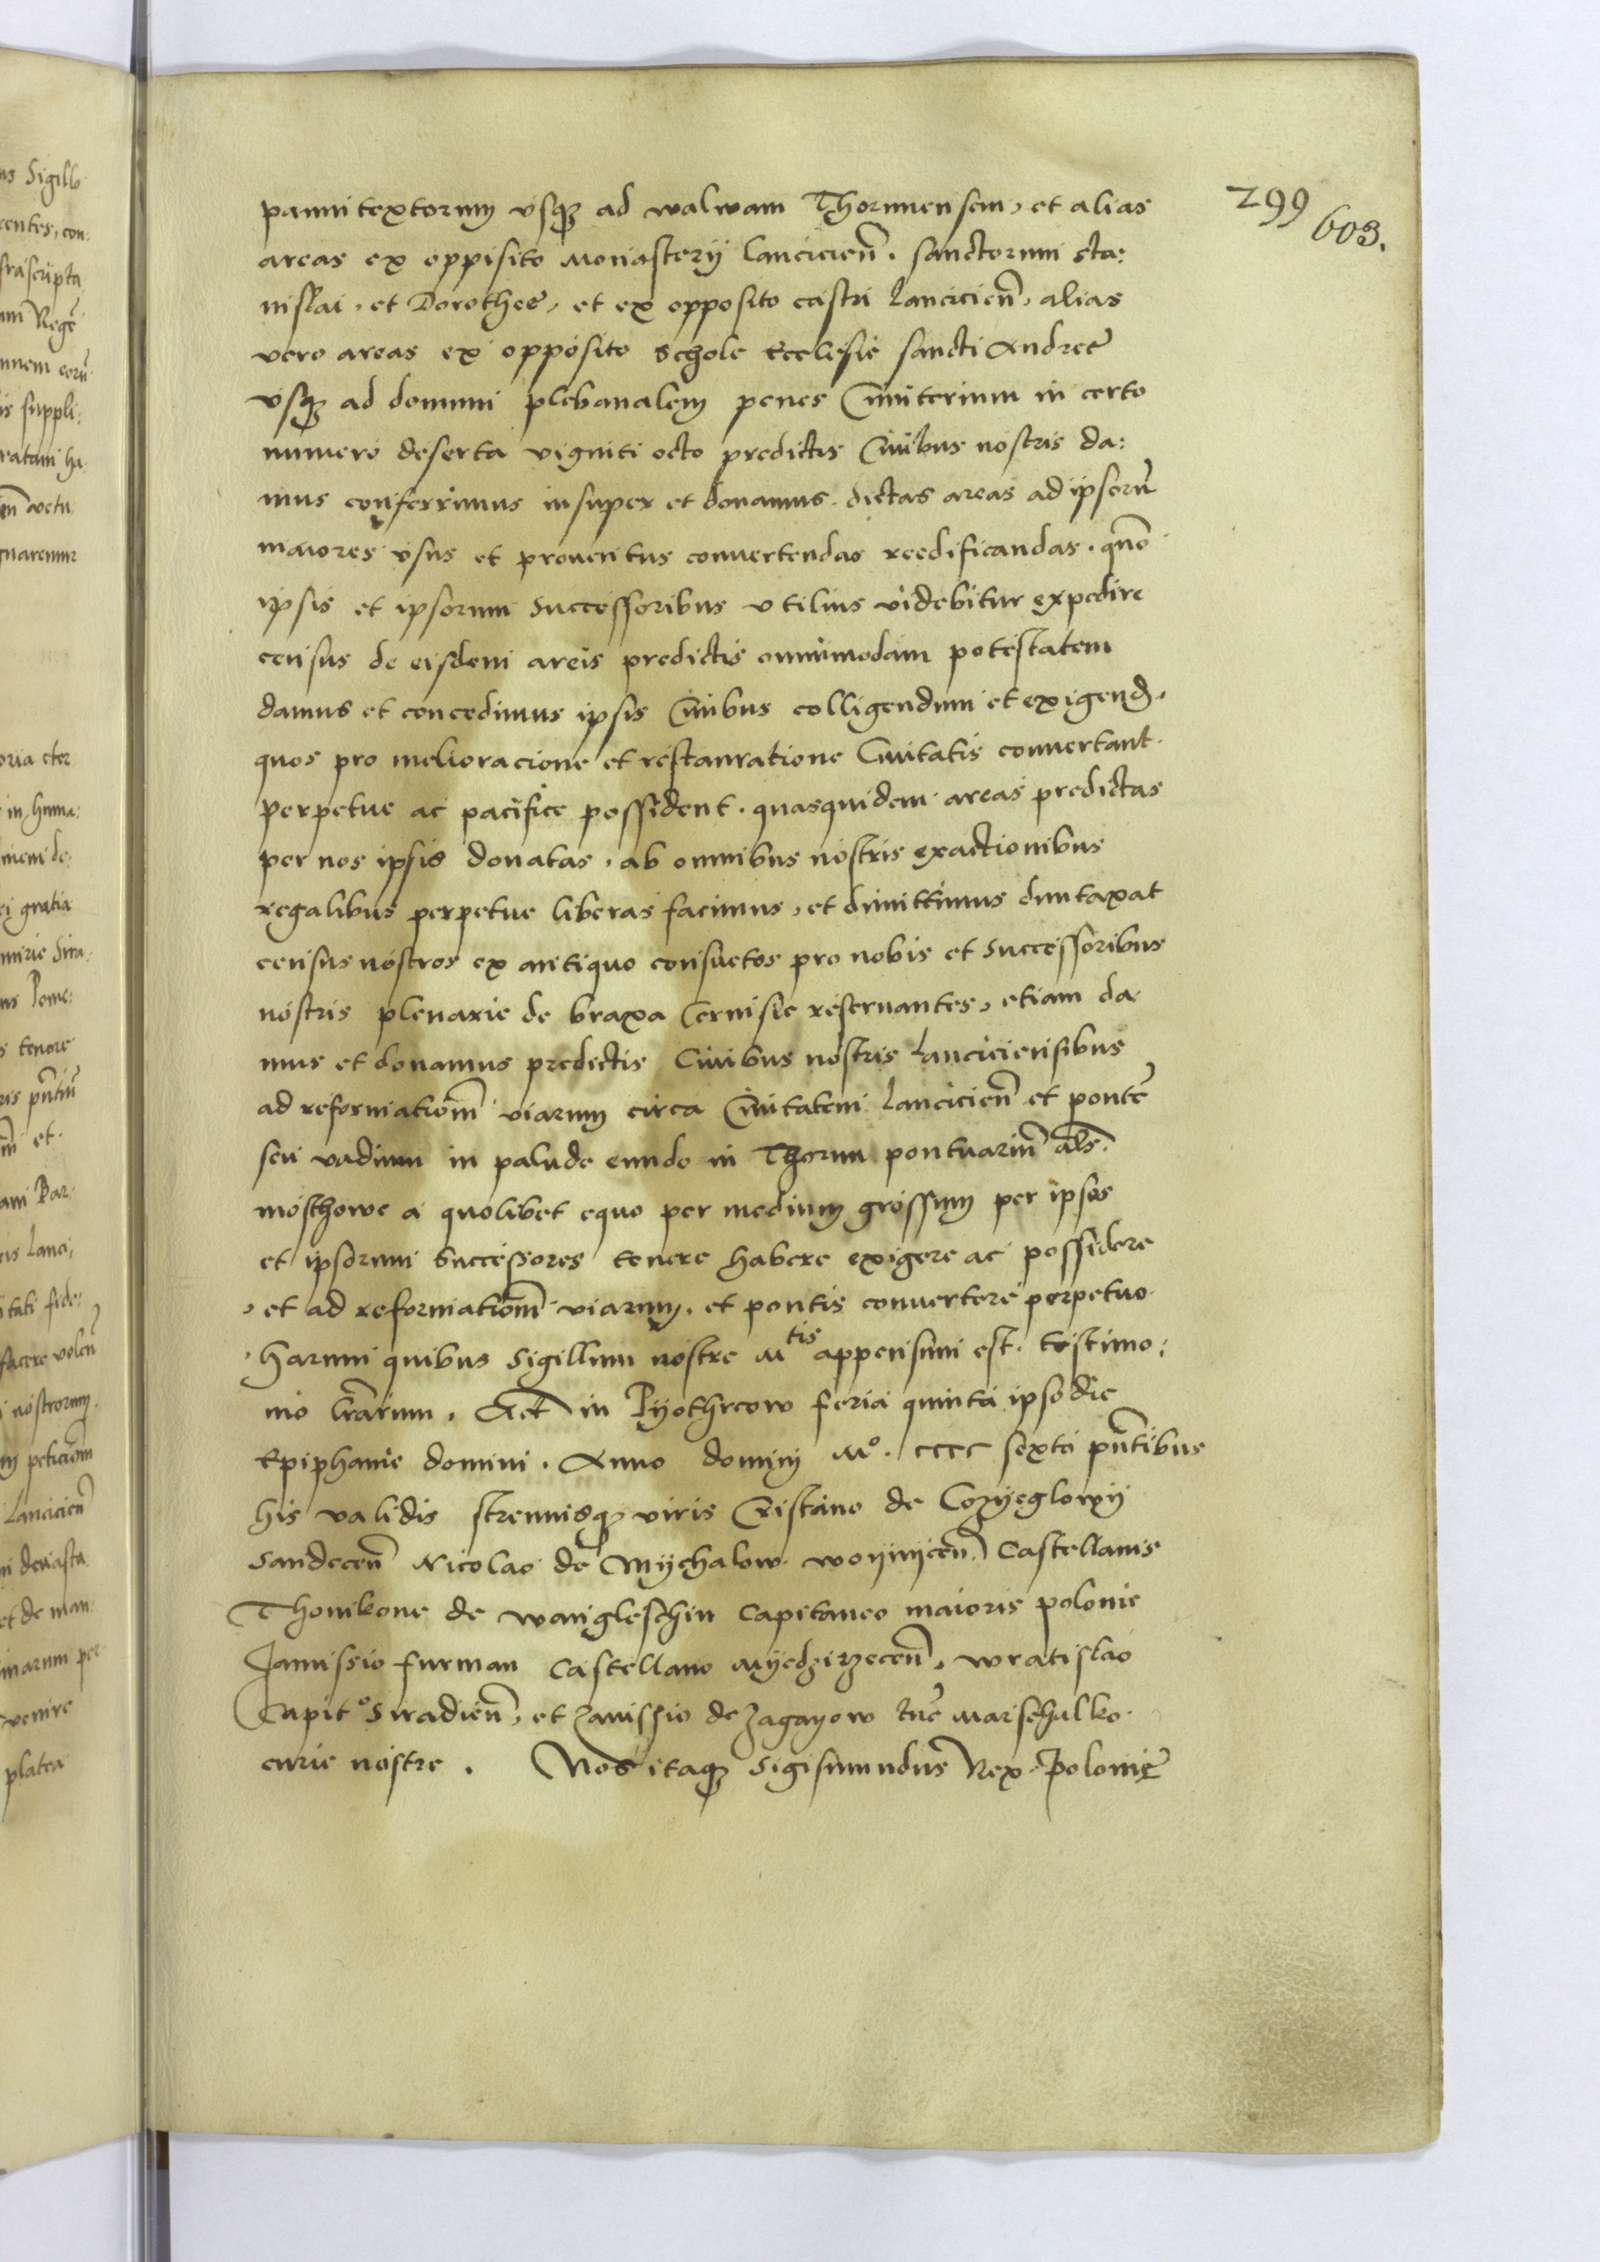 299
603.
pannitextorum usq3 ad walwam Thorunensem, et alias
areas ex opposito Monasterij Lancicień. sanctorum sta:
nislai, et Dorothee, et ex opposito castri Lancicień, alias
vero areas ex opposito Schole Ecclesie sancti Andree
usq3 ad domum plebanalem penes Cimiterium in certo
numero deserta viginti octo predictis Civibus nostris da:
mus conferrimus insuper et donamus. dictas areas ad ipsorū
maiores usus et proventus convertendas reedificandas. qūo
ipsis et ipsorum Successoribus utilius videbitur expedire
census de eisdem areis predictis omnimodam potestatem
damus et concedimus ipsis Civibus colligendum et exigend.
quos pro melioracione et restauratione Civitatis convertant.
perpetue ac pacifice possident. quasquidem areas predictas
per nos ipsis donatas, ab omnibus nostris exactionibus
regalibus perpetue liberas facimus, et dimittimus duntaxat
census nostros ex antiquo consuetos pro nobis et Successoribus
nostris plenarie de braxa Cervisie reservantes, etiam da
mus et donamus predictis Civibus nostris Lanciciensibus
ad reformatiōm viarum circa Civitatem Lancicień et pontē
seu vadium in palude eundo in Thorun pontuariū als
mosthowe a quolibet equo per medium grossum per ipsos
et ipsorum Successores tenere habere exigere ac possidere
, et ad reformatiōm viarum. et pontis convertere perpetuo.
Harum quibus Sigillum nostre Mtis appensum est. testimo:
nio lrārum. Act in Pyothrcow feria quinta ipso die
Epiphanie domini. Anno domini Mo. cccc sexto pn̄tibus
his validis strenuisq3 viris Cristino de Cozyeglowy
Sandeceń Nicolao de Mychalow woyniceń Castellanis
Thomkone de Wangleschin Capitaneo maioris polonie
Janussio furman Castellano Myedzirzeceń, Wratislao
Capito Siradień, et Zavissio de Zagayow tūc Marschalko
curie nostre. Nos itaq3 Sigismundus Rex Polonie